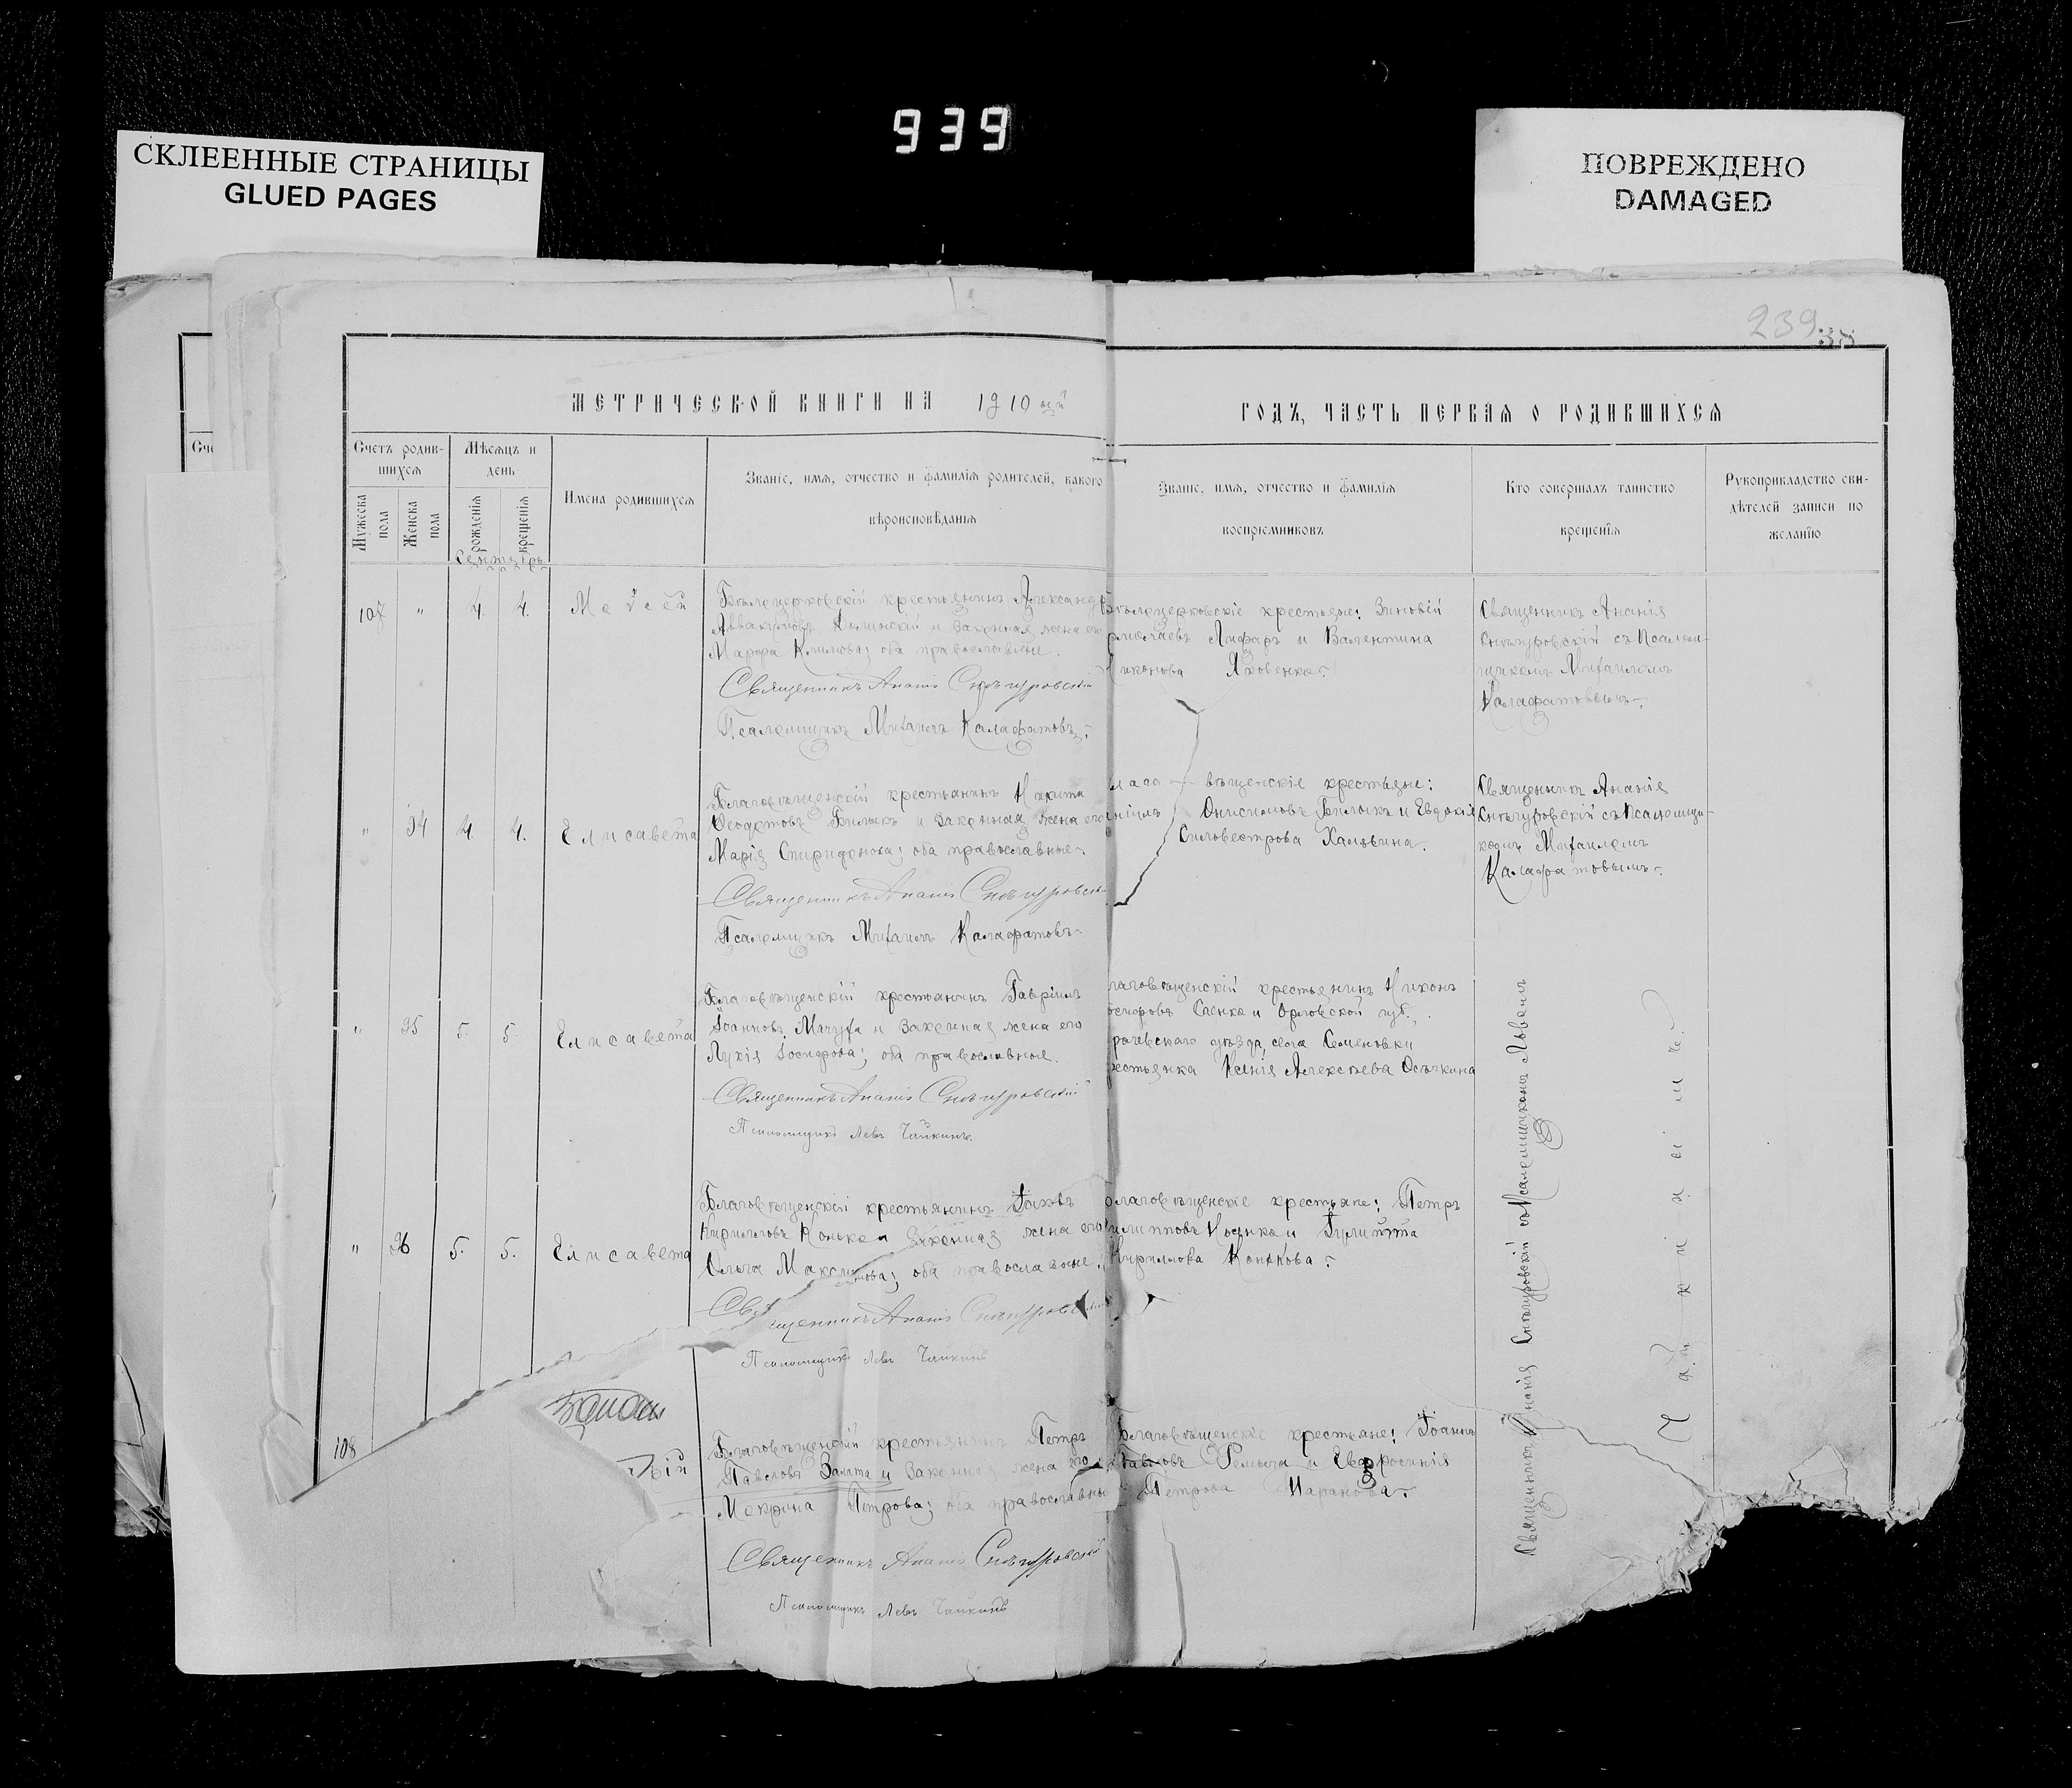 939
СКЛЕЕННЫЕ СТРАНИЦЫ
GLUED PAGES
ПОВРЕЖДЕНО
DAMAGED
239
МЕТРИЧЕСКОЙ КНИГИ НА 1910 ый
ГОДЪ, ЧАСТЬ ПЕРВАЯ О РОДИВШИХСЯ
Счетъ родив-
шихся
Мѣсяцъ и
день
Мужеска
пола
Женска
пола
рожденія
крещенія
Имена родившихся
Званіе, имя, отчество и фамилія родителей, какого
вѣроисповѣданія
Званіе, имя, отчество и фамилія
воспріемниковъ
Кто совершалъ таинство
крещенія
Рукоприкладство сви-
дѣтелей записи по
желанію
Сентябрь
107 " 4. 4. Моѵсей
Бѣлецерковскій крестьянинъ Александръ
Аввакумовъ и законная жена его
Марфа Климова; оба православные.
Священникъ Ананія Снѣгуровскій
Псаломщикъ Михаилъ Калафатовъ.
Бѣлецерковскіе крестьяне: Зиновій
Ермолаевъ Лифарь и Валентина
Никонова Яковенко.
Священникъ Ананія
Снѣгуровскій съ псалом-
щикомъ Михаиломъ
Калафатовымъ.
" 94 4. 4. Елисавета
Благовѣщенскій крестьянинъ Никита
Ѳеодотовъ Билыкъ и законная жена его
Марія Спиридонова; оба православные.
Священникъ Ананія Снѣгуровскій
Псаломщикъ Михаилъ Калафатовъ.
вѣщенскіе крестьяне:
Онисимовъ Билыкъ и Евдокія
Силовестрова Халявина.
Священникъ Ананія
Снѣгуровскій съ псаломщи-
комъ Михаиломъ
Калафатовымъ.
" 95 5. 5. Елисавета
Благовѣщенскій крестьянинъ Гавріилъ
Іоанновъ Мачуха и законная жена его
Лукія Іосифова; оба православные.
Священникъ Ананія Снѣгуровскій
Псаломщикъ Левъ Чайкинъ.
лаговѣщенскій крестьянинъ Никонъ
осифовъ Саенко и Орловской губ.,
рачевскаго уѣзда, села Семеновки
рестьянка Ксенія Алексѣева Осѣчкина
" 96 5. 5. Елисавета
Благовѣщенскій крестьянинъ Іаковъ
Кирилловъ Конько и законная жена его
Ольга Максимова; оба православные.
Священникъ Ананія Снѣгуровскій
Псаломщикъ Левъ Чайкинъ
лаговѣщенскіе крестьяне: Петръ
илипповъ Коцико и Іулитта
Кириллова Конькова.
108
Благовѣщенскій крестьянинъ Петръ
Павловъ Запата и законная жена его
Мокрина Петрова; оба православны
Священникъ Ананія Снѣгуровскій
Псаломщикъ Левъ Чайкинъ
Благовѣщенскіе крестьяне: Іоаннъ
Павловъ и Евфросинія
Петрова
Священникъ Ананія Снѣгуровскій съ псаломщикомъ Львомъ
Чайкинымъ.